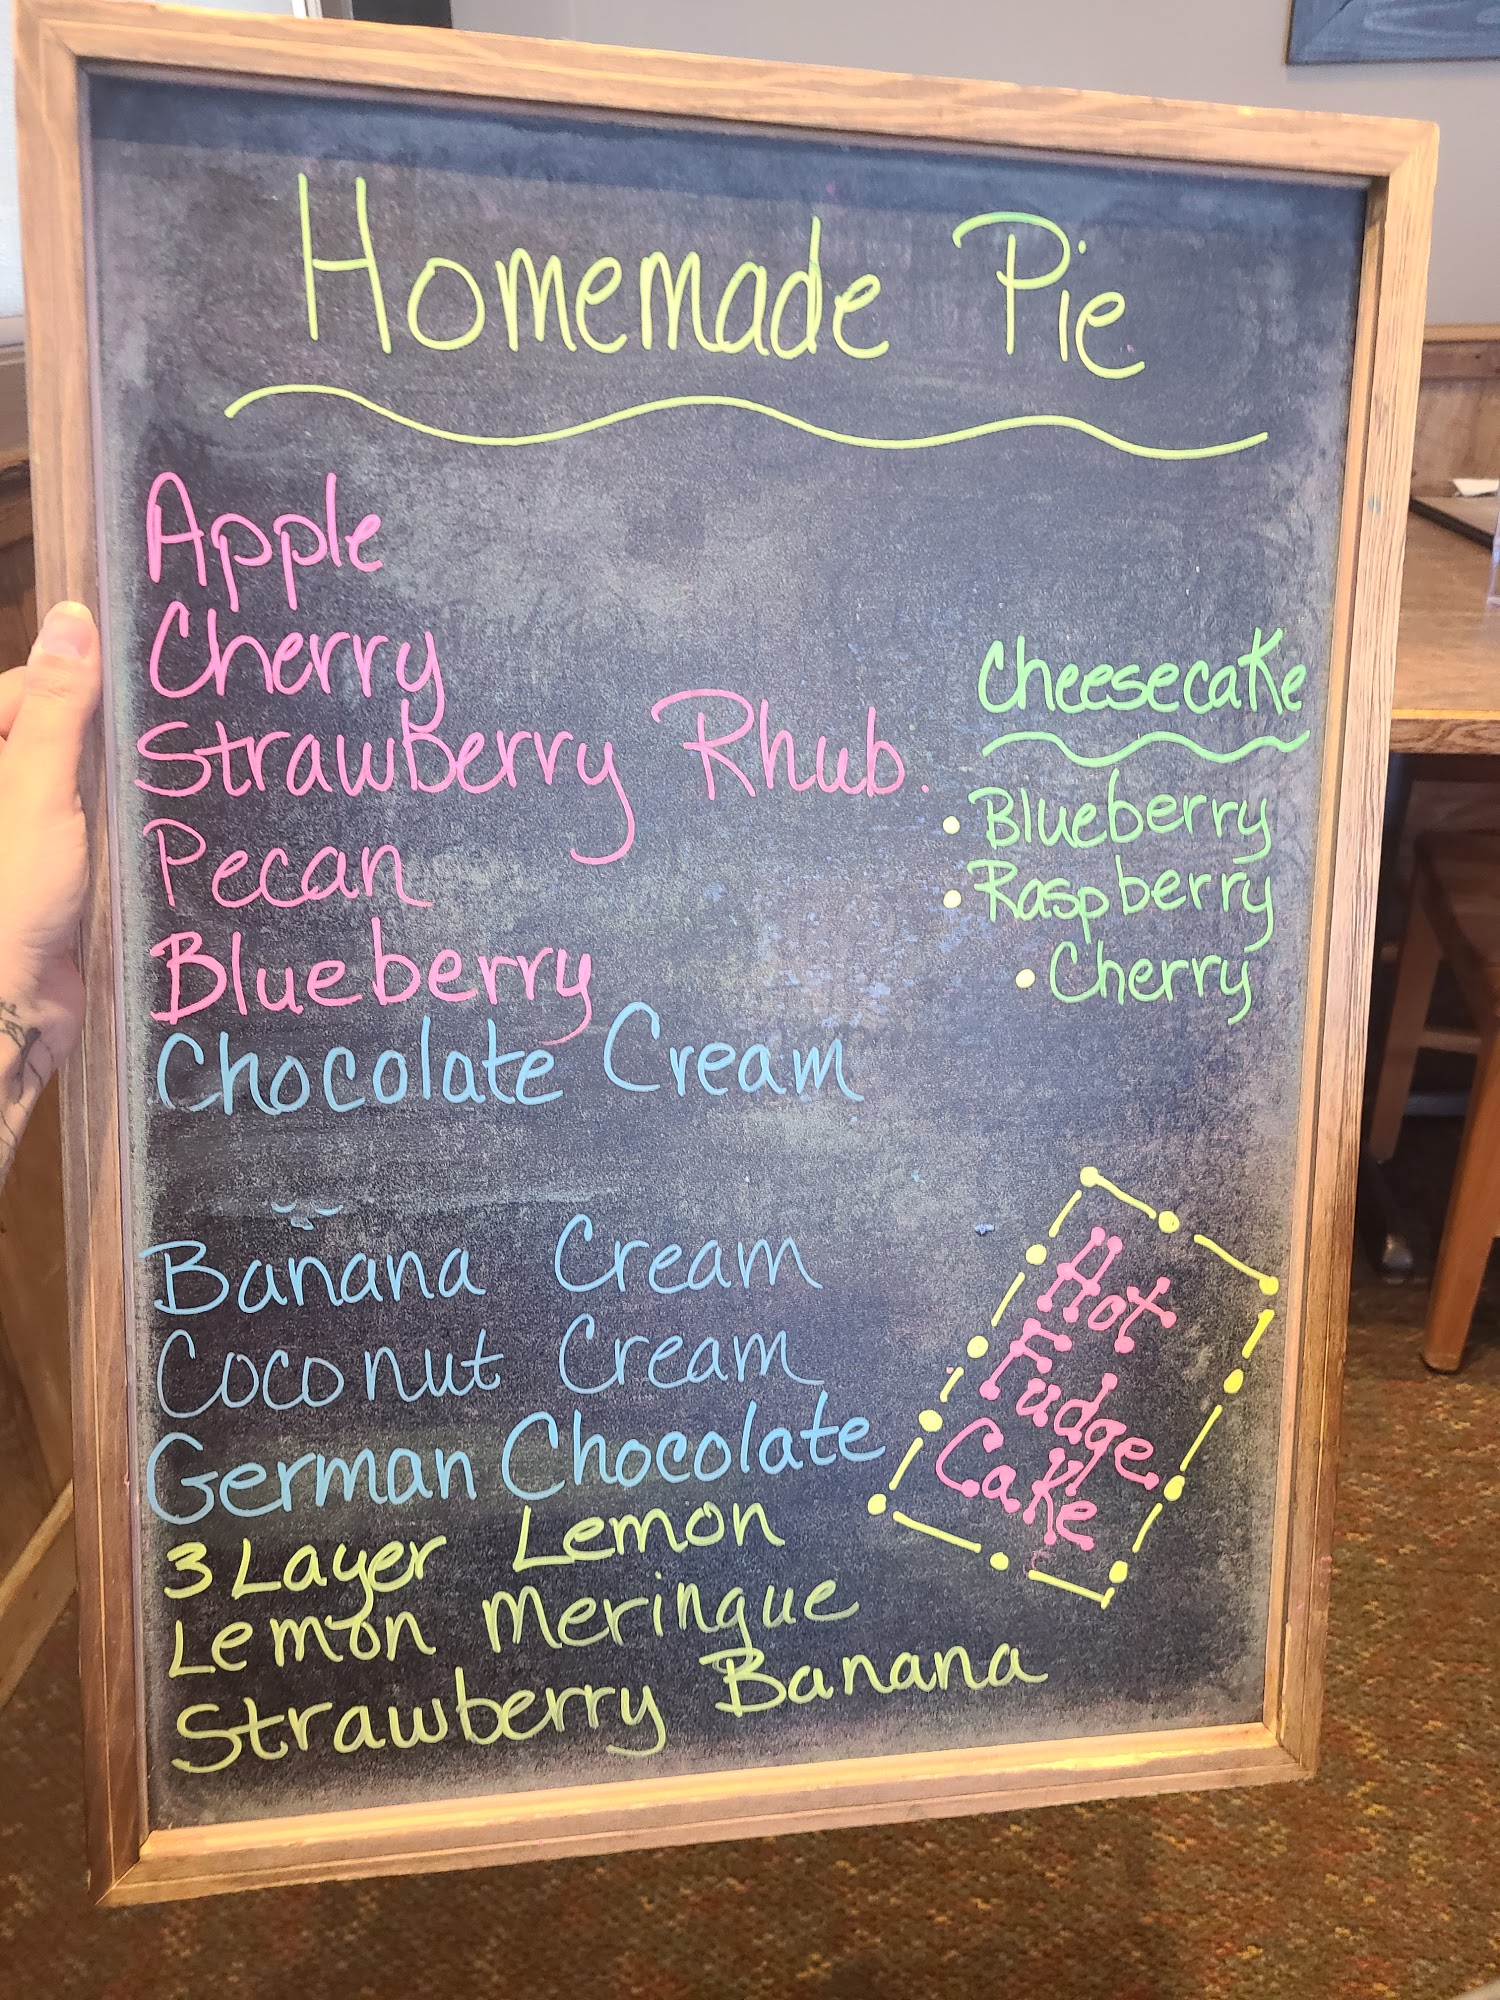 Homemade Pie
Apple
Cherry
Strawberry Rhub.
Pecan
Blueberry
Chocolate Cream
Banana Cream
Coconut Cream
German Chocolate
3 Layer Lemon
Lemon Meringue
Strawberry Banana
Cheesecake
• Blueberry
• Raspberry
• Cherry
Hot
Fudge
Cake